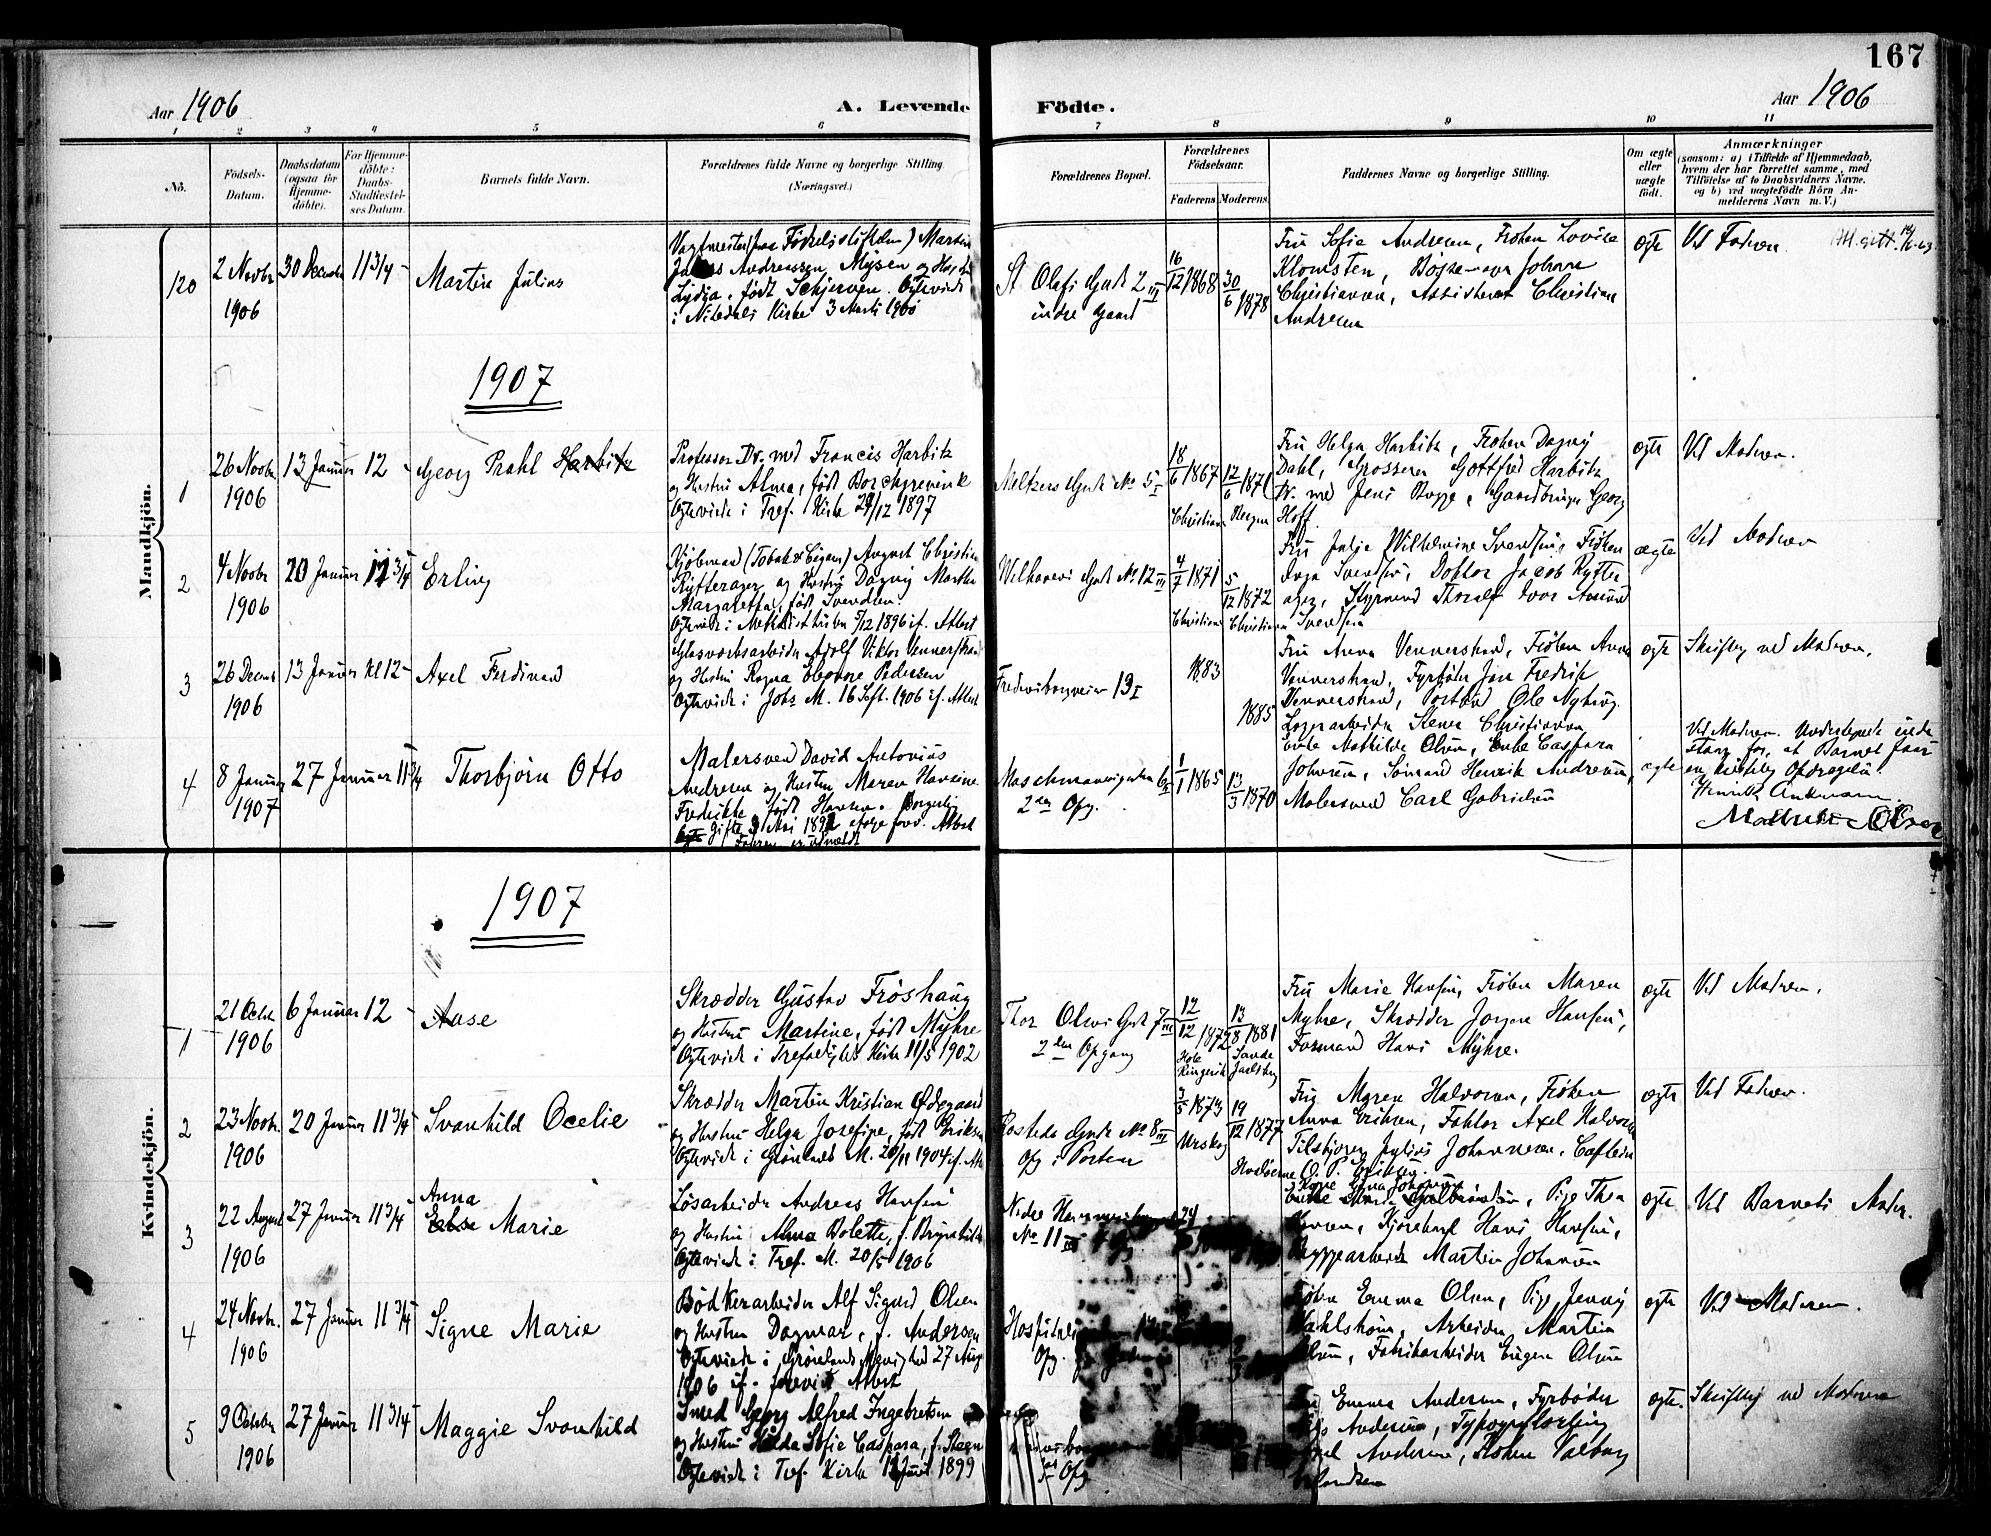 167
Aar 1906
A. Levende Födte.
Aar 1906
1 2 3 4 5 6 7 8 9 10 11
No.
Födsels-
Datum.
Daabsdatum
(ogsaa for
Hjemme-
döbte).
For Hjemme-
döbte:
Daabs-
Stadfæstel-
ses Datum.
Barnets fulde Navn.
Forældrenes fulde Navne og borgerlige Stilling.
(Næringsvei.)
Forældrenes Bopæl.
Forældrenes
Födselsaar.
Faderens Moderens
Faddernes Navne og borgerlige Stilling.
Om ægte
eller
uægte
födt.
Anmærkninger
(saasom: a) i Tilfælde af Hjemmedaab,
hvem der har forrettet samme, med
Tilföielse af to Daabsvidners Navne,
og b) ved uægtefödte Börn An-
melderens Navn m. V.)
Mandkjön.
120
2 Novbr
1906
30 Decbr
11 3/4
Martin Julius
Martin
Andreassen, Mysen og Hustru
Lydia, født Schjerven. Ægteviede
i Nitedals Kirke 3 Marts 1900
St. Olafs Gade 2 III
indre Gaard
16/12 1868
30/6 1878
Fru Sofie Andresen, Frøken Lovise
Klomsten, Johanne
Christiansen, Assistent Christian
Andresen
ægte
Ved Faderen.
1907
1
26 Novbr
1906
13 Januar
12
Georg Prahl Harbitz
Professor Dr. med Francis Harbitz
og Hustru Alma, født Borchgrevink
Ægteviede i Tref. Kirke 29/12 1897
Meltzers Gade No 5 I
18/6 1867
Christiania
12/6 1871
Bergen
Fru Helga Harbitz, Frøken Dagny
Dahl, Grosserer Gottfred Harbitz
Dr. med Jens Bugge, Gaardbruger Georg
Hoff.
ægte
Ved Moderen.
2
4 Novbr
1906
20 Januar
11 3/4
Erling
Kjøbmand (Tobak & Cigarer) August Christian
Rytterager og Hustru Dagny Marthe
Margaretha, født Svendsen.
Ægteviede i Methodistkirken 5/12 1896 if. Attest
Wilhelms Gade No 12 III
4/7 1871
Christiania
5/12 1872
Christiania
Fru Julie Wilhelmine Svendsen, Frøken
Inga Svendsen, Doktor Jacob Rytter
ager, Styrmand Thoralf Ivar Amund
Svendsen
ægte
Ved Moderen
3
26 Decemb
1906
13 Januar
Kl 12
Axel Ferdinand
Glasværksarbeider Adolf Viktor Vennerstrand
og Hustru Ragna Eleonore Pedersen
Ægteviede i Johs M. 16 Sept. 1906 if. Attest
Fredensborgveien 19 I
1883
1885
Fru Anna Vennerstrand, Frøken Anna
Vennerstrand, Fyrbøder Jon Fredrik
Vennerstrand, Postbud Ole Nyborg.
ægte
Skriftlig ved Moderen.
4
8 Januar
1907
27 Januar
11 3/4
Thorbjørn Otto
Malersvend David Antonius
Andresen og Hustru Maren Hansine
Fredrikke, født Hansen. Borgerlig
Gifte 9 Mai 1892 ifølge forev. Attest
Faderen er udmeldt
Maschmannsgaden 6 II
2den Opg.
1/1 1865
13/3 1870
Steen Christiansen
Enke Mathilde Olsen, Enke Caspara
Johnsen, Sømand Henrik Andresen,
Malersvend Carl Gabrielsen
ægte
Ved Moderen. Undertegnede inde-
staar for, at Barnet faar
en kristelig Opdragelse.
Henrik Ankmann.
Mathilde Olsen
Kvindekjön.
1907
1
21 Octbr
1906
6 Januar
12
Aase
Skrædder Gustav Frøshaug
og Hustru Martine, født Myhre
Ægteviede i Trefoldigheds Kirke 11/5 1902
Thor Olsens Gade 7 III
2den Opgang
12/12 1872
Hole
Ringerik
13/8 1881
Sande
Jarlsberg
Fru Marie Hansen, Frøken Maren
Myhre, Skrædder Jørgen Hansen,
Formand Hans Myhre.
ægte
Ved Moderen.
2
23 Novbr.
1906
20 Januar
11 3/4
Svanhild Cecilie
Skrædder Martin Kristian Ødegaard
og Hustru Helga Josefine, født Eriksen
Ægteviede i Grønlands M. 20/11 1904 if. Att
Rosteds Gade No 8 III
Opg i Porten
3/5 1873
Urskog
19/12 1877
Fru Maren Halvorsen, Frøken
Anna Eriksen, Faktor Axel Halvorsen
Julius Johannesen,
O. P. Eriksen.
ægte
Ved Faderen.
3
22 August
1906
27 Januar
11 3/4
Anna
Else Marie
Løsarbeider Andreas Hansen
og Hustru Alma Bolette, f.
Ægteviede i Tref. M. 20/5 1906
Nedre
No 11
Pige Thea
Hansen, Kjørekarl Hans Hansen,
Bryggearbeider Martin Johansen
ægte
Ved Barnets Moder.
4
24 Novbr.
1906
27 Januar
11 3/4
Signe Marie
Bødkerarbeider Alf Sigurd Olsen
og Hustru Dagmar, f. Andersen
Ægteviede i Grønlands Menighed 27 Aug
1906 if. forevist Attest
Opg.
Frøken Emma Olsen, Pige Jenny
Wahlstrøm, Arbeider Martin
Olsen, Fabrikarbeider Eugen Olsen
ægte
Ved Moderen.
5
9 October
1906
27 Januar
11 3/4
Maggie Svanhild
Smed Georg Alfred Ingebretsen
og Hustru Hilda Sofie Caspara, f.
Ægteviede i Tref. Kirke Juni 1899
Opg
Fru Emma Andersen, Fyrbøder
Andersen, Typograflærling
Andersen, Frøken Valborg
ægte.
Skriftlig ved Moderen